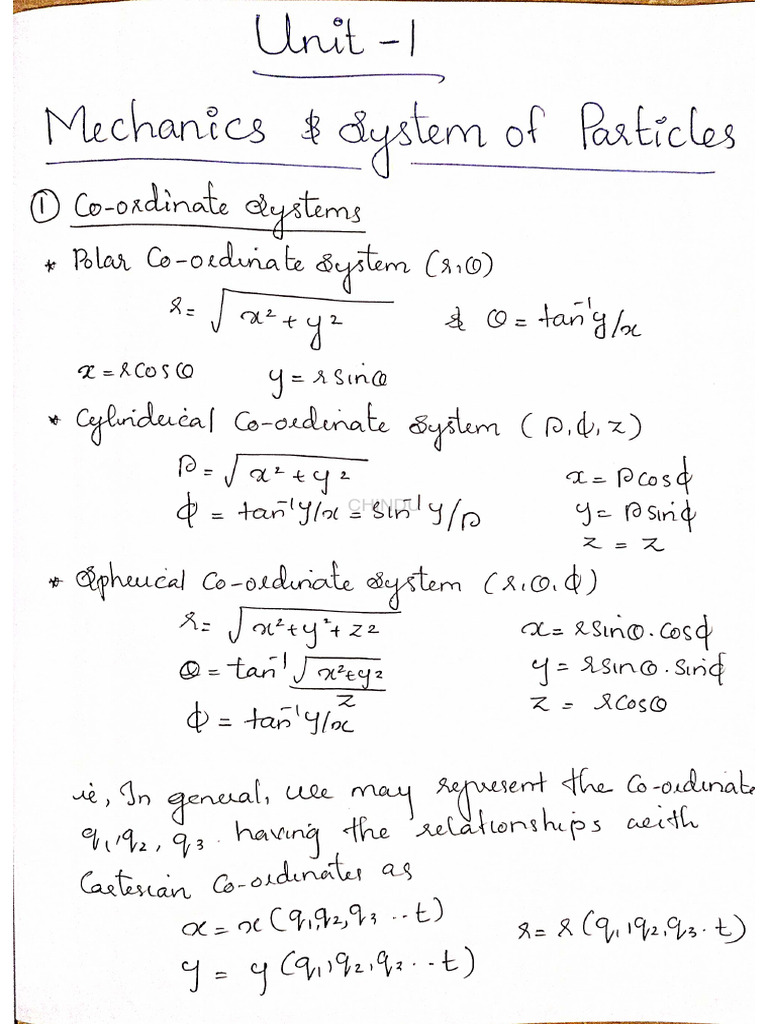 Unit - 1
Mechanics & System of Particles
① Co-ordinate Systems
* Polar Co-ordinate System (r, θ)
r = √(x² + y²) & θ = tan⁻¹ y/x
x = r cos θ y = r sin θ
* Cylinderical Co-ordinate System (ρ, ϕ, z)
ρ = √(x² + y²) x = ρ cos ϕ
ϕ = tan⁻¹ y/x = sin⁻¹ y/ρ y = ρ sin ϕ
CHINDU
z = z
* Spherical Co-ordinate System (r, θ, ϕ)
r = √(x² + y² + z²) x = r sin θ . cos ϕ
θ = tan⁻¹ √(x² + y²)/z y = r sin θ . sin ϕ
z = r cos θ
ϕ = tan⁻¹ y/x
ie, In general, we may represent the Co-ordinate
q₁, q₂, q₃. having the relationships with
Cartesian Co-ordinates as
x = x (q₁, q₂, q₃ .. t) r = r (q₁, q₂, q₃ . t)
y = y (q₁, q₂, q₃ .. t)